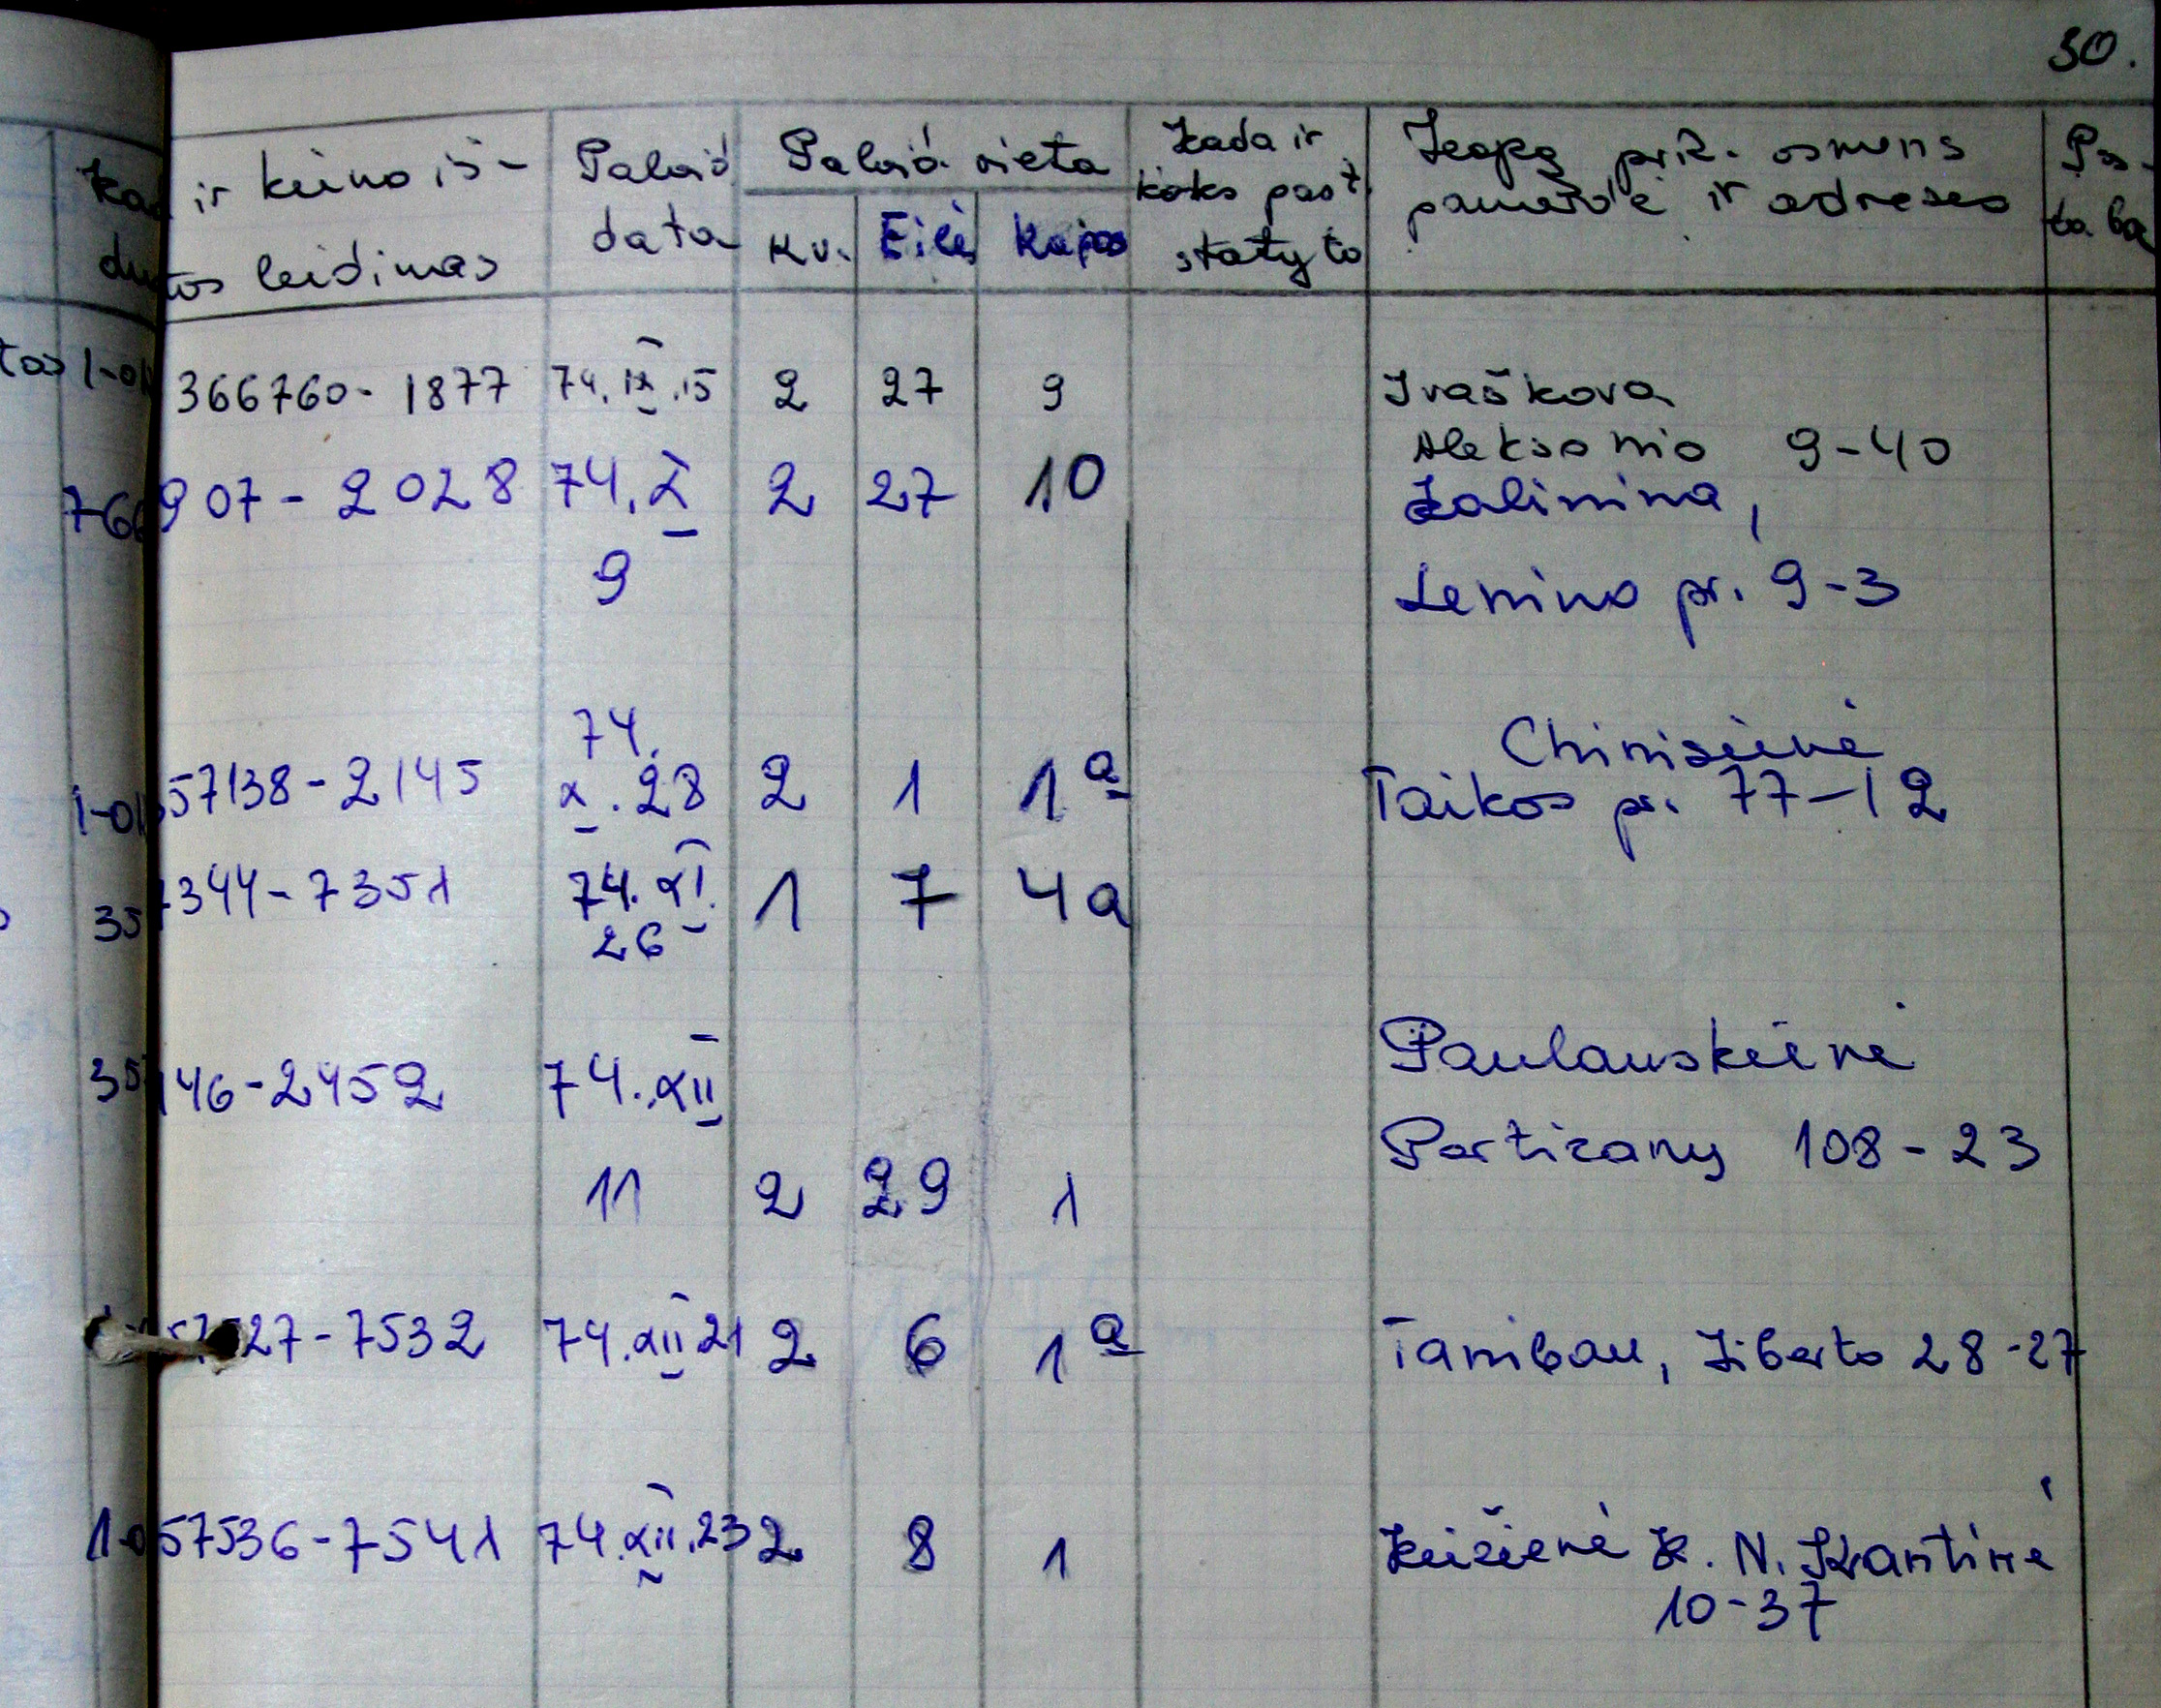 30.
Kad ir kieno iš- Palaid. Palaid. vieta Kada ir Kapą priž. osmens Pas-
duotos leidimas data Kv. Eilė Kapas koks past. pavardė ir adresas taba
statyta
tas 1-01 366760- 1877 74.IX.15 2 27 9 Ivaškova
Aleksonio 9-40
7-66 907- 2028 74.X 2 27 10 Kalinina,
9 Lenino pr. 9-3
74. Chinisienė
1-01 57138-2145 X.28 2 1 1a Taikos pr. 77-12
35 7344-7351 74.XI. 1 7 4a
26
Paulauskienė
35 146-2452 74.XII
Partizanų 108-23
11 2 29 1
27-7532 74.XII 21 2 6 1a Tamibau, Žiberto 28-27
1-0 57536-7541 74.XII.23 2 8 1 Keizienė K. N. Krantinė
10-37